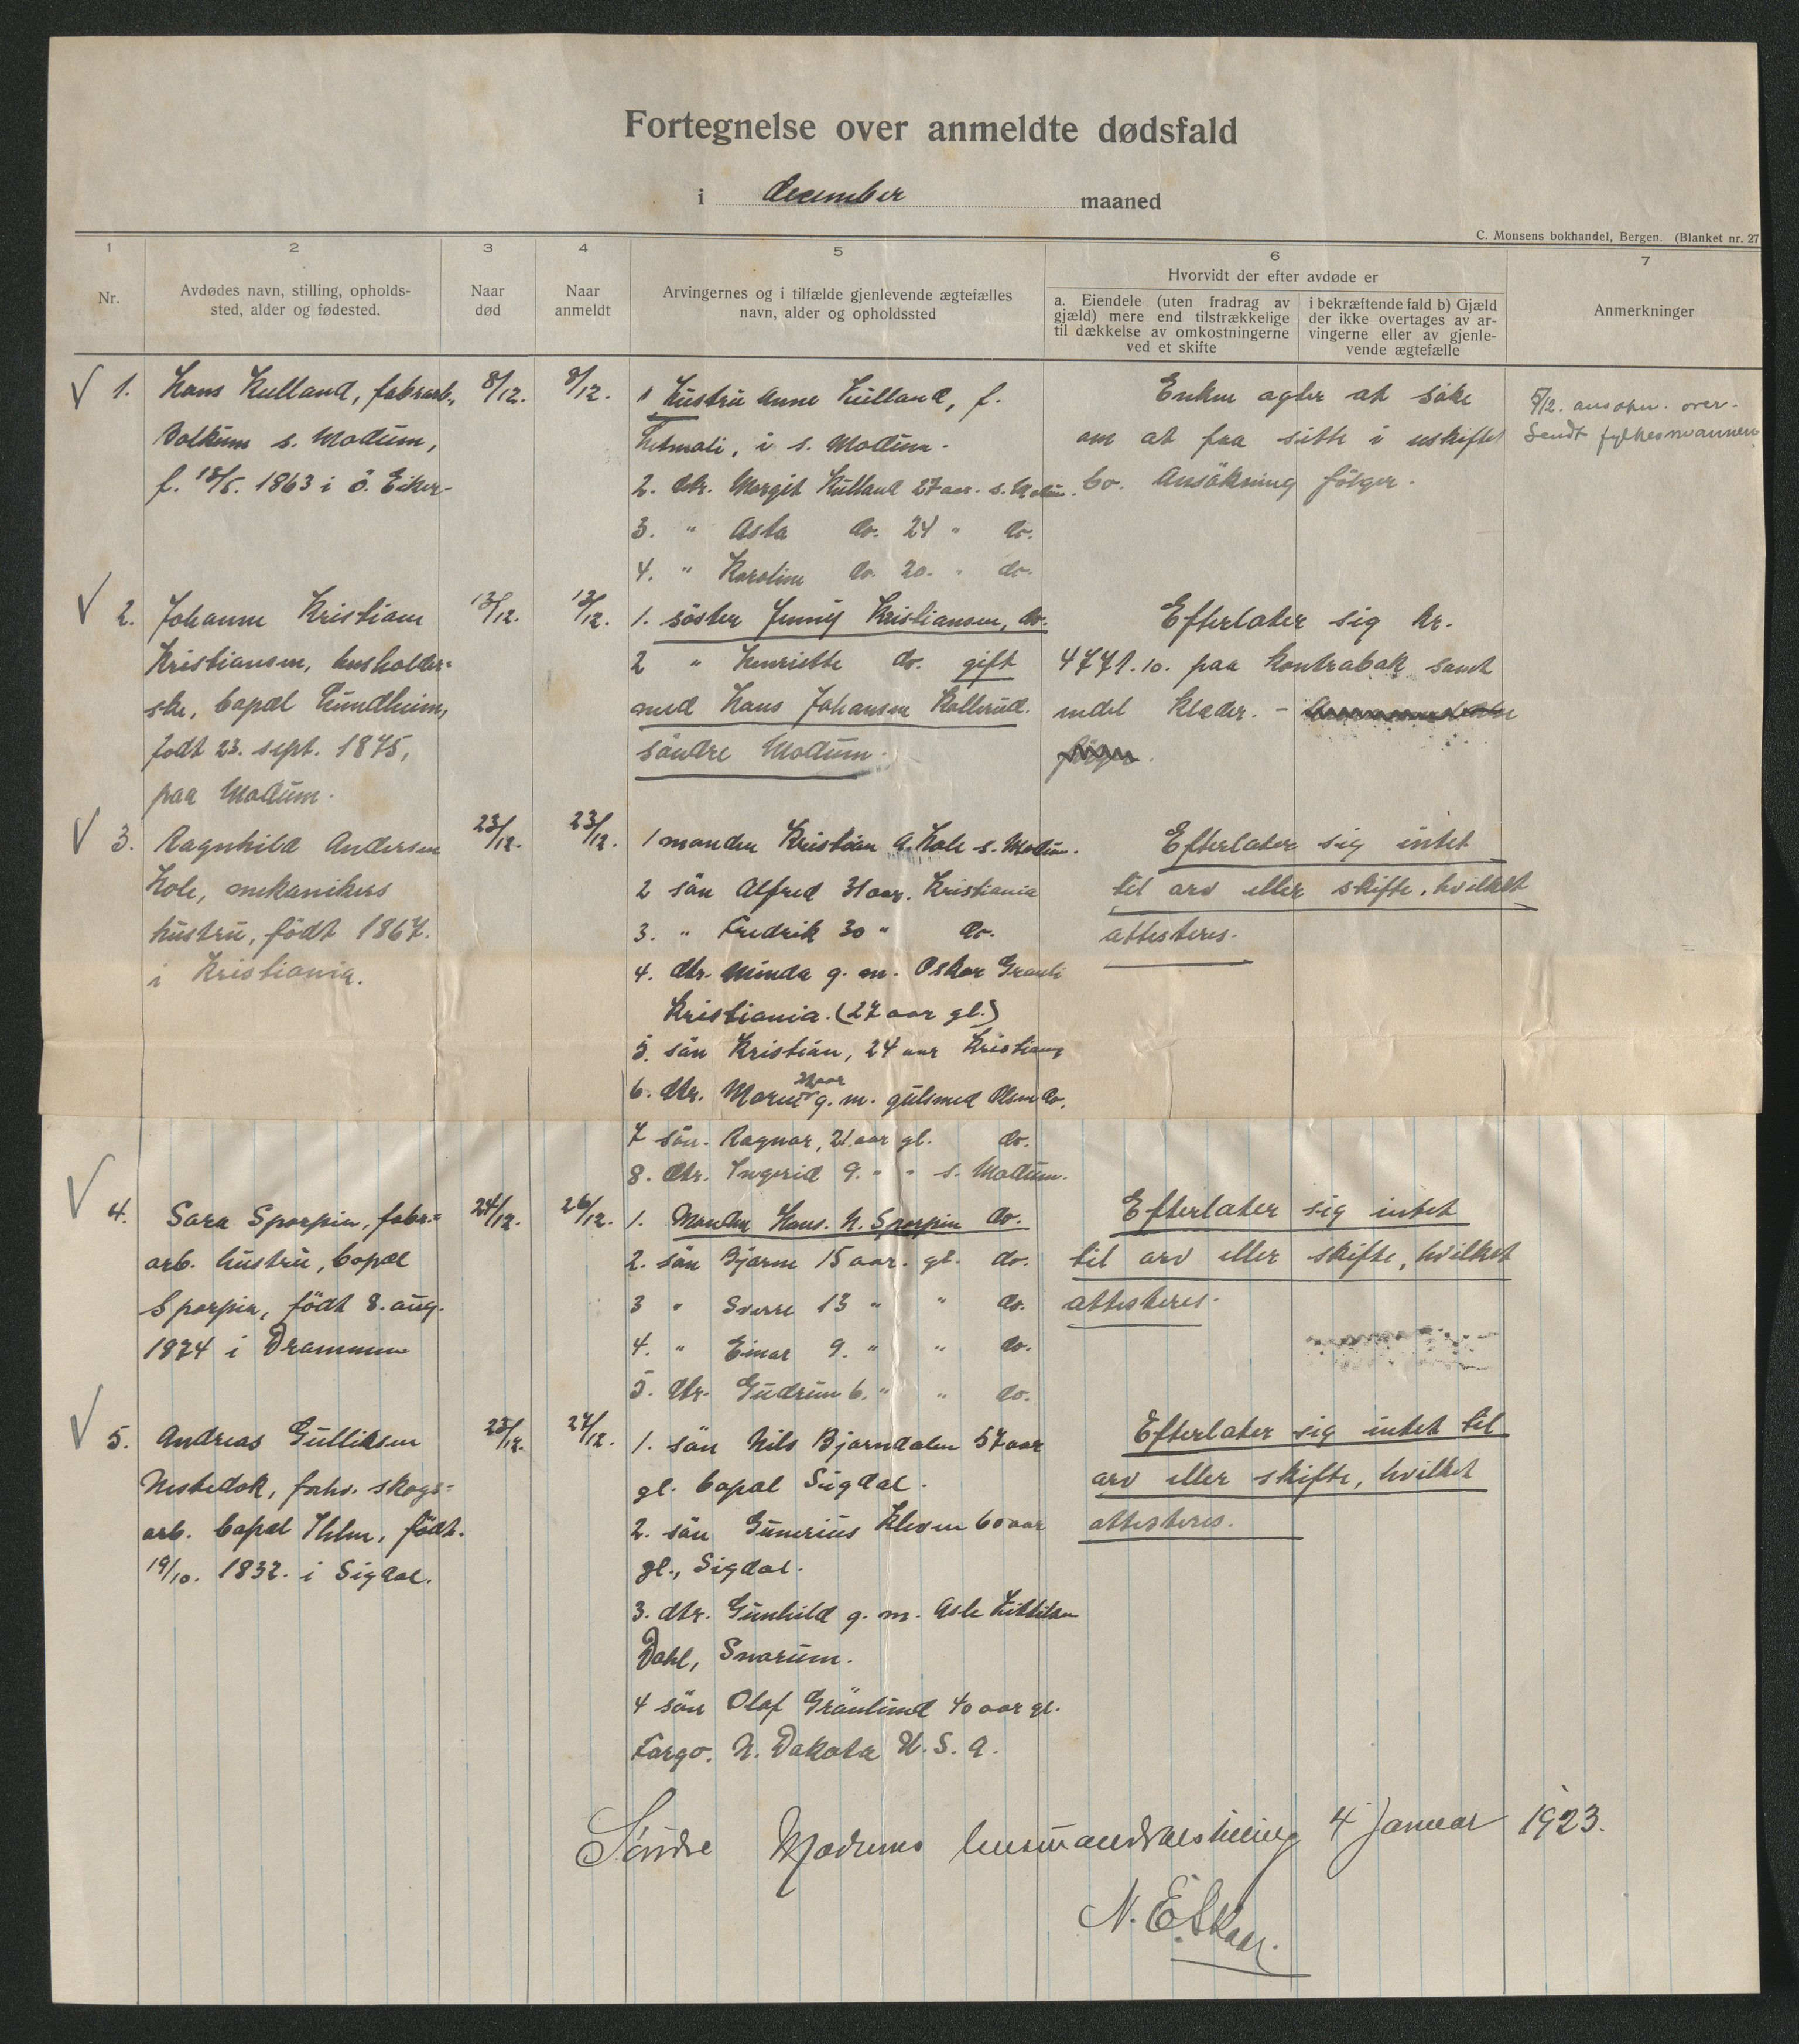 Fortegnelse over anmeldte dødsfald
i december maaned
C. Monsens bokhandel, Bergen. (Blanket nr. 27
1 2 3 4 5 6 7
Nr.
Avdødes navn, stilling, opholds-
sted, alder og fødested.
Naar
død
Naar
anmeldt
Arvingernes og i tilfælde gjenlevende ægtefælles
navn, alder og opholdssted
Hvorvidt der efter avdøde er
a. Eiendele (uten fradrag av
gjæld) mere end tilstrækkelige
til dækkelse av omkostningerne
ved et skifte
i bekræftende fald b) Gjæld
der ikke overtages av ar-
vingerne eller av gjenle-
vende ægtefælle
Anmerkninger
1. Hans Hulland, fabrarb.,
s. Modum,
1863 i ö. Eiker.
8/12.
8/12.
1 Hustru Anne Hulland, f.
i s. Modum.
2. dtr. Margit Hulland 27 aar. s. Modum.
3. " Asta do. 24 " do.
4. " Karoline do. 20. " do.
Enken agter at söke
om at faa sitte i uskiftet
bo. Ansökning fölger.
5/12. ansökn. over-
sendt fylkesmannen
2. Johanne Kristiane
Kristiansen, husholder=
ske, bopæl Lundheim,
født 23. sept. 1875,
paa Modum.
13/12.
13/12.
1. söster Jenny Kristiansen, do.
2 " Henriette do. gift
med Hans Johansen Kollerud.
söndre Modum.
Efterlater sig kr.
4771.10. paa kontrabok samt
endel klæder. -
3. Ragnhild Andersen
Hole, mekanikers
hustru, födt 1867.
i Kristiania.
23/12.
23/12.
1 manden Kristian A. Hole s. Modum.
2 sön Alfred 31 aar. Kristiania
3. " Fredrik 30 " do.
4. dtr. Minda g. m. Oskar
Kristiania. (27 aar gl.)
5. sön Kristian, 24 aar Kristiania
6. dtr. g. m. gulsmed Olsen do.
7 sön. Ragnar, 21 aar gl. do.
8. dtr. Ingerid 9. " " s. Modum.
Efterlater sig intet
til arv eller skifte, hvilket
attesteres.
4. Sara Sporpin, fabr.=
arb. hustru, bopæl
Sporpin, födt 8. aug.
1874 i Drammen
24/12.
26/12.
1. Manden Hans. N. Sporpin do.
2. sön Bjarne 15 aar. gl. do.
3 " Sverre 13 " " do.
4. " Einar 9. " " do.
5. dtr. Gudrun 6. " " do.
Efterlater sig intet
til arv eller skifte, hvilket
attesteres.
5. Andreas Gulliksen
forhv. skogs=
arb. bopæl födt.
19/10. 1832. i Sigdal.
25/12.
27/12.
1. sön Nils Bjørndalen 57 aar
gl. bopæl Sigdal.
2. sön Gunerius Kleven 60 aar
gl., Sigdal.
3. dtr. Gunhild g. m. Asle Kittilsen
Dahl, Snarum.
4 sön Olaf Grönlund 40 aar gl.
Fargo. N. Dakota U. S. A.
Efterlater sig intet til
arv eller skifte, hvilket
attesteres.
Søndre Modums lensmandsbestilling 4 Januar 1923.
N. E. Skaar.